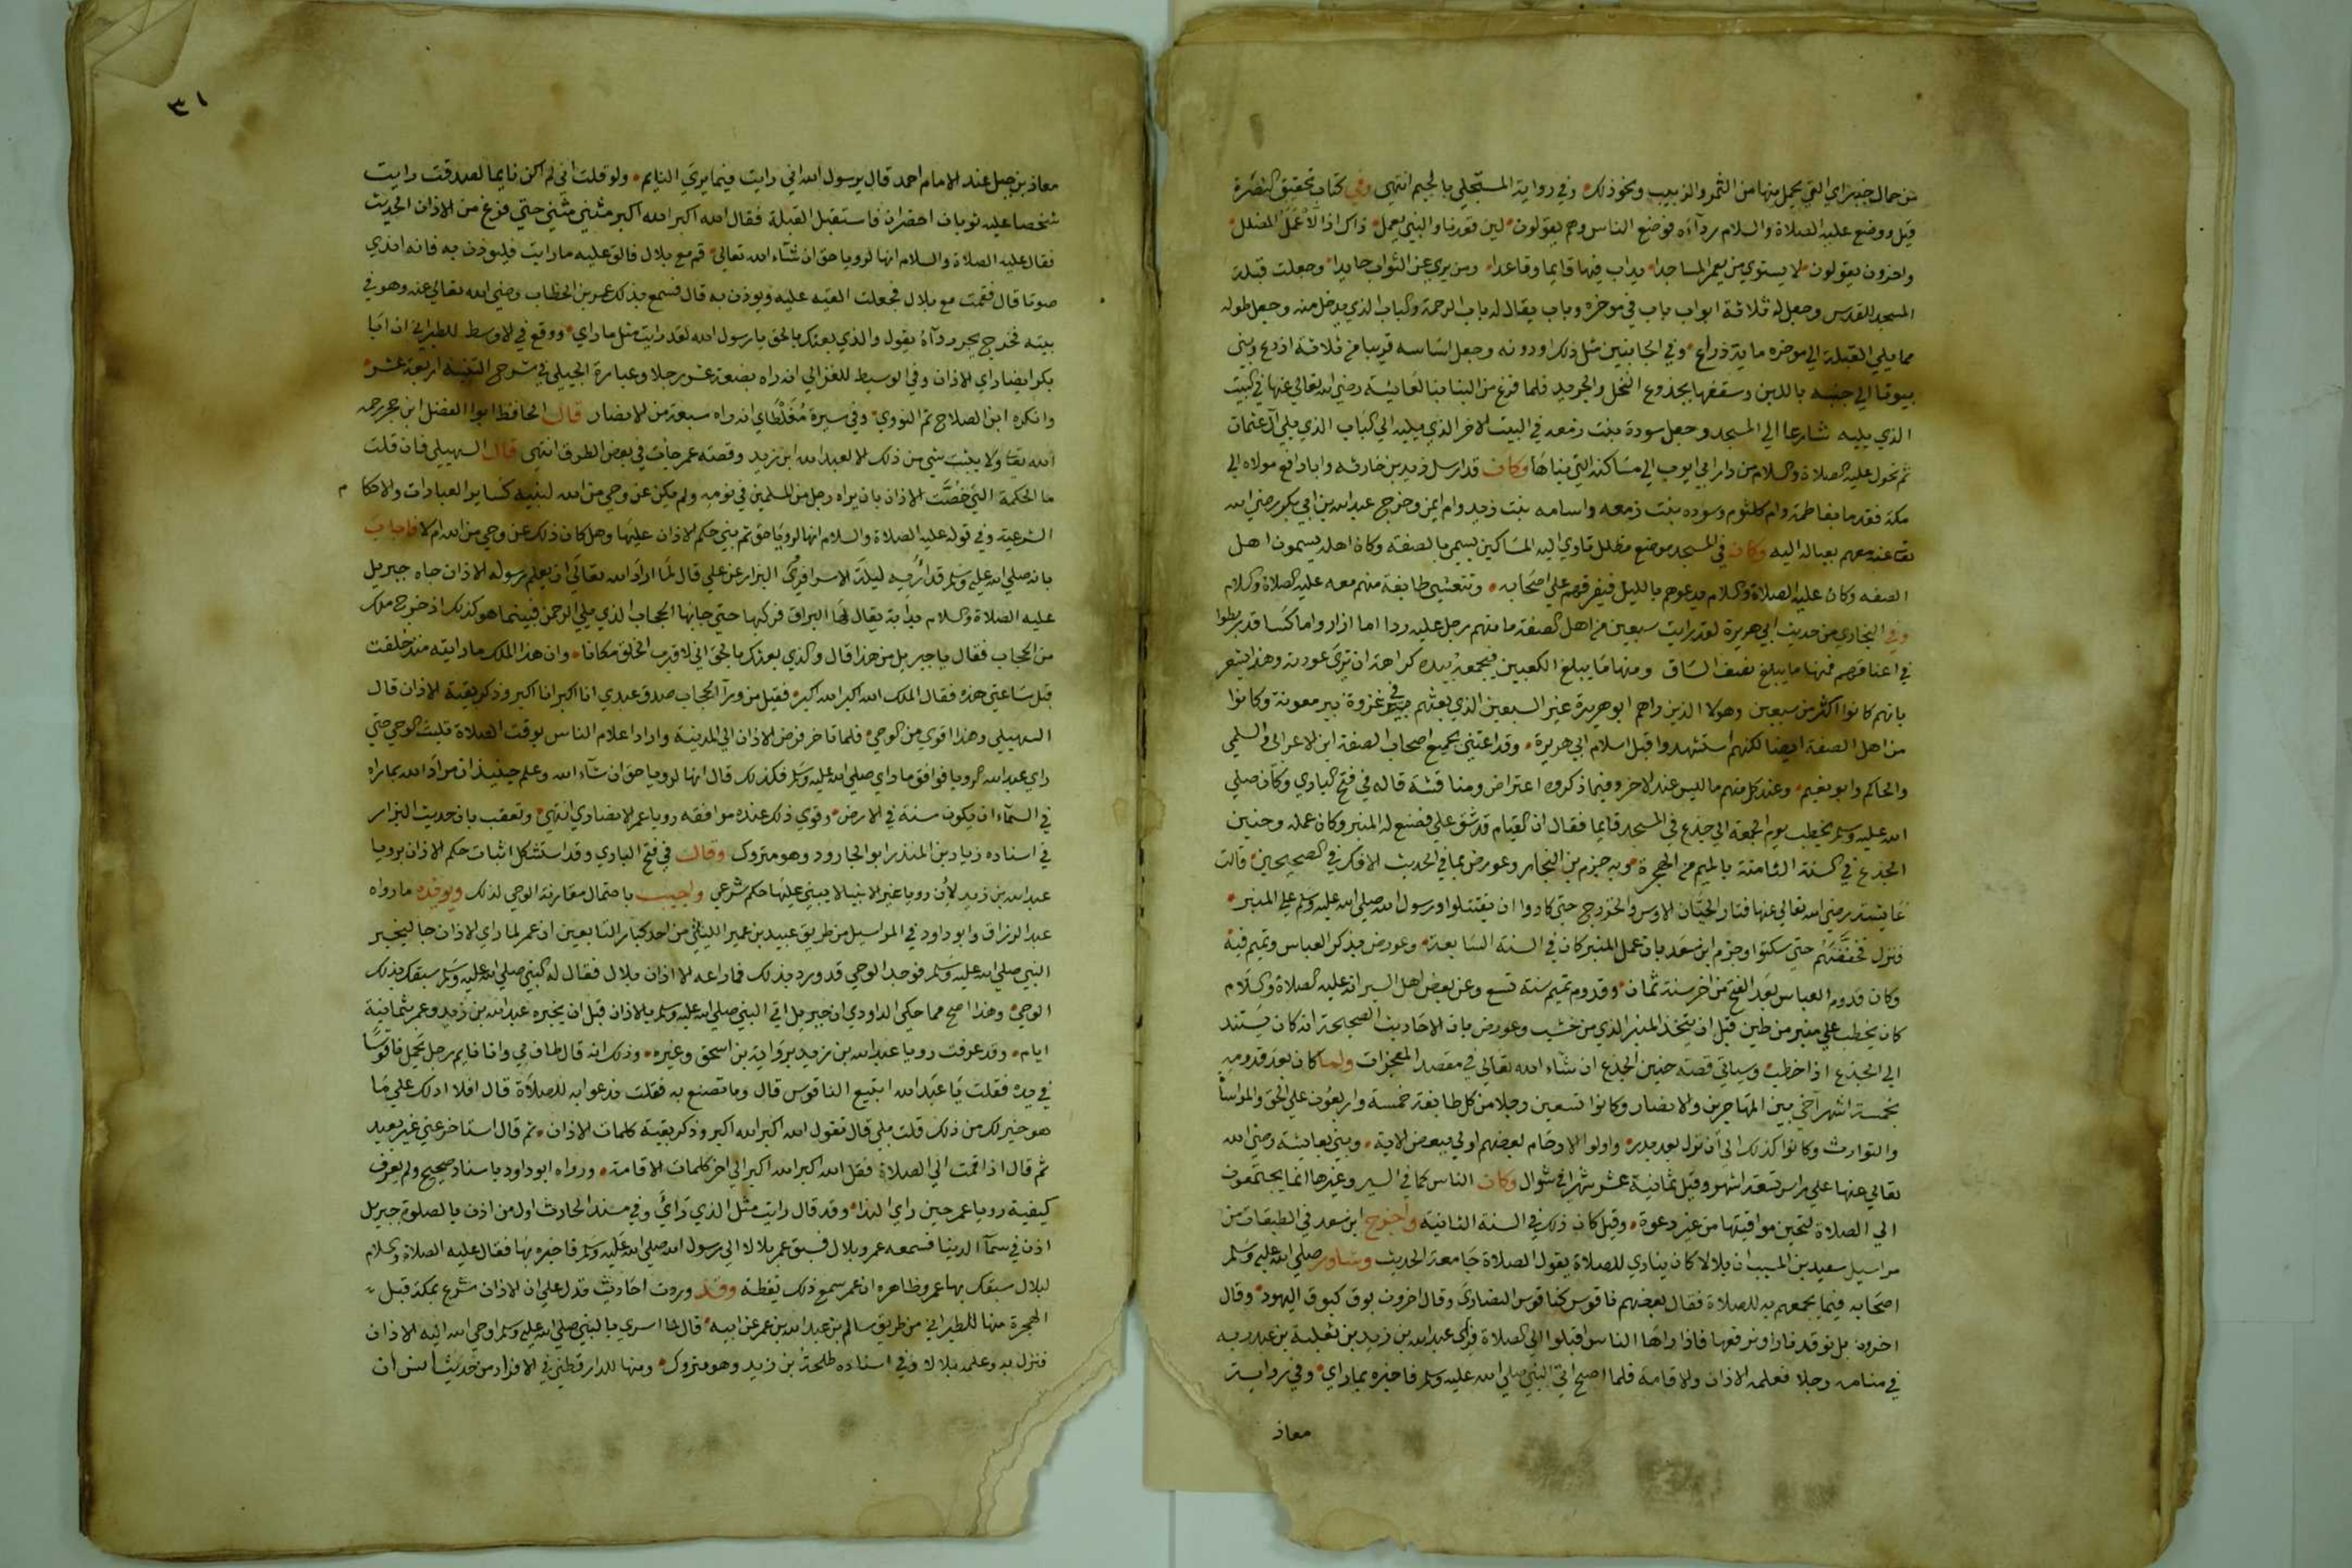 من حمال خيبر اي التي يحمل منها من الثمر والزبيب ونحو ذلك وفي رواية المستملي بالجيم انتهى وفي كتاب تحقيق النصرة
قيل ووضع عليه الصلاة والسلام رداءه فوضع الناس وهم يقولون لين قعدنا والنبي يعمل ذاك اذا لا عمل المضلل
واخرون يقولون لا يستوي من يعمر المساجدا يداب فيها قايما وقاعدا ومن يرى عن التراب حايدا وجعلت قبلة
المسجد للقدس وجعل له ثلاثة ابواب باب في موخره وباب يقال له باب الرحمة والباب الذي يدخل منه وجعل طوله
مما يلي القبلة الي موخره ماية ذراع وفي الجانبين مثل ذلك او دونه وجعل اساسه قريبا من ثلاثة اذرع وبني
بيوتا الي جنبه باللبن وسقفها بجذوع النخل والجريد فلما فرغ من البنا بنا لعايشة رضي الله تعالي عنها في البيت
الذي يليه شارعا الي المسجد وجعل سودة بنت زمعه في البيت الاخر الذي يليه الي الباب الذي يلي آل عثمان
ثم تحول عليه الصلاة والسلام من دار ابي ايوب الي مساكنه التي بناها وكان قد ارسل زيد بن حارثه وابا رافع مولاه الي
مكة فقدما بفاطمة وام كلثوم وسوده بنت زمعه واسامه بنت زيد وام ايمن وخرج عبد الله بن ابي بكر رضي الله
تعا عنه معهم بعيال ابيه وكان في المسجد موضع مظلل تاوي اليه المساكين يسمي بالصفة وكان اهله يسمون اهل
الصفه وكان عليه الصلاة والسلام يدعوهم بالليل فيفرقهم علي اصحابه وتتعشى طايفة منهم معه عليه الصلاة والسلام
وفي البخاري من حديث ابي هريرة لقد رايت سبعين من اهل الصفة ما منهم رجل عليه ردا اما ازار واما كسا قد ربطوا
في اعناقهم فمنها ما يبلغ نصف الساق ومنها ما يبلغ الكعبين فيجمعه بيده كراهة ان ترى عورته وهذا يشعر
بانهم كانوا اكثر من سبعين وهولا الذين راهم ابو هريرة غير السبعين الذي بعثهم في غزوة بير معونة وكانوا
من اهل الصفة ايضا لكنهم استشهدوا قبل اسلام ابي هريرة وقد اعتني بجميع اصحاب الصفة ابن الاعرابي والسلمي
والحاكم وابو نعيم وعند كل منهم ما ليس عند الاخر وفيما ذكروه اعتراض ومناقشة قاله في فتح الباري وكان صلي
الله عليه وسلم يخطب يوم الجمعة الي جذع في المسجد قايما فقال ان القيام قد شق علي فصنع له المنبر وكان عمله وحنين
الجذع في السنة الثامنة بالميم من الهجرة وبه جزم بن النجار وعورض بما في الحديث الافك في الصحيحين قالت
عايشة رضي الله تعالي عنها فثار الحيان الاوس والخزرج حتى كادوا ان يقتتلوا ورسول الله صلي الله عليه وسلم علي المنبر
فنزل فخفضهم حتى سكتوا وجزم ابن سعد بان عمل المنبر كان في السنة السابعة وعورض بذكر العباس وتميم فيه
وكان قدوم العباس بعد الفتح من اخر سنة ثمان وقدوم تميم سنة تسع وعن بعض اهل السير انه عليه الصلاة والسلام
كان يخطب علي منبر من طين قبل ان يتخذ المنبر الذي من خشب وعورض بان الاحاديث الصحيحة انه كان يستند
الي الجذع اذا خطب وسياتي قصة حنين الجذع ان شاء الله تعالي في مقصد المعجزات ولما كان بعد قدومه
بخمسة اشهر آخى بين المهاجرين والانصار وكانوا تسعين رجلا من كل طايفة خمسة واربعون علي الحق والمواساة
والتوارث وكانوا كذلك الي ان نزل بعد بدر واولوا الارحام بعضهم اولي ببعض الاية وبني بعايشة رضي الله
تعالي عنها علي راس تسعة اشهر وقيل ثمانية عشر شهرا في شوال وكان الناس كما في السير وغيرها انما يجتمعون
الي الصلاة لتحين مواقيتها من غير دعوة وقيل كان ذلك في السنة الثانية واخرج ابن سعد في الطبقات من
مراسيل سعيد بن المسيب ان بلالا كان ينادي للصلاة يقول الصلاة جامعة الحديث وشاور صلي الله عليه وسلم
اصحابه فيما يجمعهم به للصلاة فقال بعضهم ناقوس كناقوس النصارى وقال اخرون بوق كبوق اليهود وقال
اخرون بل نوقد نارا ونرفعها فاذا راها الناس اقبلوا الي الصلاة فراى عبد الله بن زيد بن ثعلبة بن عبد ربه
في منامه رجلا فعلمه الاذان والاقامة فلما اصبح اتي النبي صلي الله عليه وسلم فاخبره بما راي وفي رواية
معاذ
٣١
معاذ بن جبل عند الامام احمد قال يرسول الله اني رايت فيما يري النايم ولو قلت اني لم اكن نايما لصدقت رايت
شخصا عليه ثوبان اخضران فاستقبل القبلة فقال الله اكبر الله اكبر مثني مثني حتي فرغ من الاذان الحديث
فقال عليه الصلاة والسلام انها لرويا حق ان شاء الله تعالي قم مع بلال فالق عليه ما رايت فليوذن به فانه اندي
صوتا قال فقمت مع بلال فجعلت القيه عليه ويوذن به قال فسمع بذلك عمر بن الخطاب رضي الله تعالي عنه وهو في
بيته فخرج يجر رداءه يقول والذي بعثك بالحق يا رسول الله لقد رايت مثل ما راي ووقع في الاوسط للطبراني ان ابا
بكر ايضا راي الاذان وفي الوسيط للغزالي انه راه بضعة عشر رجلا وعبارة الجيلي في شرح التنبيه اربعة عشر
وانكره ابن الصلاح ثم النووي وفي سيرة مغلطاي انه راه سبعة من الانصار قال الحافظ ابو الفضل ابن حجر رحمه
الله تعا ولا يثبت شي من ذلك الا لعبد الله ابن زيد وقصة عمر جات في بعض الطرق انتهي قال السهيلي فان قلت
ما الحكمة التي خصت الاذان بان يراه رجل من المسلمين في نومه ولم يكن عن وحي من الله لنبيه كساير العبادات والاحكا م
الشرعية وفي قوله عليه الصلاة والسلام انها لرويا حق ثم بني حكم الاذان عليها وهل كان ذلك عن وحي من الله ام لا فاجاب
بانه صلي الله عليه وسلم قد اريه ليلة الاسرا فروى البزار عن علي قال لما اراد الله تعالي ان يعلم رسوله الاذان جاه جبريل
عليه الصلاة والسلام بدابة يقال لها البراق فركبها حتي جا بها الحجاب الذي يلي الرحمن فبينما هو كذلك اذ خرج ملك
من الحجاب فقال يا جبريل من هذا قال والذي بعثك بالحق اني لاقرب الخلق مكانا وان هذا الملك ما رايته منذ خلقت
قبل ساعتي هذه فقال الملك الله اكبر الله اكبر فقيل من ورآ الحجاب صدق عبدي انا اكبر انا اكبر وذكر بقية الاذان قال
السهيلي وهذا اقوي من الوحي فلما تاخر فرض الاذان الي المدينة واراد اعلام الناس بوقت الصلاة فلبث الوحي حتي
راي عبد الله الرويا فوافق ما راي صلي الله عليه وسلم فلذلك قال انها لرويا حق ان شاء الله وعلم حينيذ ان مراد الله بما راه
في السمآء ان يكون سنة في الارض وقوي ذلك عنده موافقه رويا عمر للانصاري انتهي وتعقب بان حديث البزار
في اسناده زياد بن المنذر ابو الجارود وهو متروك وقال في فتح الباري وقد استشكل اثبات حكم الاذان برويا
عبد الله بن زيد لان رويا غير الانبيا لا يبني عليها حكم شرعي واجيب باحتمال مقارنة الوحي لذلك ويويده ما رواه
عبد الرزاق وابو داود في المراسيل من طريق عبيد بن عمير الليثي من احد كبار التابعين ان عمر لما راي الاذان جا ليخبر
النبي صلي الله عليه وسلم فوجد الوحي قد ورد بذلك فما راعه الا اذان بلال فقال له النبي صلي الله عليه وسلم سبقك بذلك
الوحي وهذا اصح مما حكي الداودي ان جبريل اتي النبي صلي الله عليه وسلم بالاذان قبل ان يخبره عبد الله بن زيد وعمر بثمانية
ايام وقد عرفت رويا عبد الله بن زيد برواية بن اسحق وغيره وذلك انه قال طاف بي وانا نايم رجل يحمل ناقوسا
في يده فقلت يا عبد الله اتبيع الناقوس قال وما تصنع به فقلت ندعوا به للصلاة قال افلا ادلك علي ما
هو خير لك من ذلك قلت بلي قال تقول الله اكبر الله اكبر وذكر بقية كلمات الاذان ثم قال استاخر عني غير بعيد
ثم قال اذا قمت الي الصلاة فقل الله اكبر الله اكبر الي اخر كلمات الاقامة ورواه ابو داود باسناد صحيح ولم يعرف
كيفية رويا عمر حين راي الندا وقد قال رايت مثل الذي راى وفي مسند الحارث اول من اذن بالصلوة جبريل
اذن في سمآ الدنيا فسمعه عمر وبلال فسبق عمر بلالا الي رسول الله صلي الله عليه وسلم فاخبره بها فقال عليه الصلاة والسلام
لبلال سبقك بها عمر وظاهره ان عمر سمع ذلك يقظة وقد وردت احاديث تدل علي ان الاذان شرع بمكة قبل
الهجرة منها للطبراني من طريق سالم بن عبد الله بن عمر عن ابيه قال لما اسري بالنبي صلي الله عليه وسلم اوحي الله اليه الاذان
فنزل به وعلمه بلالا وفي اسناده طلحة بن زيد وهو متروك ومنها للدارقطني في الافراد من حديث انس ان